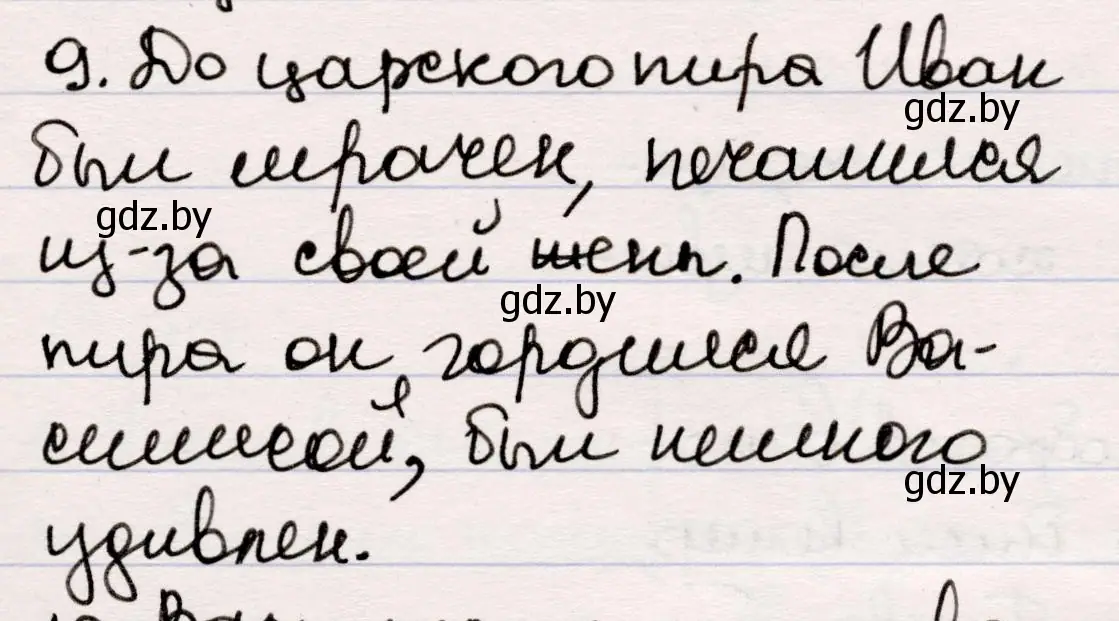 9. До царского пира Иван
gdz.by
был мрачен, печалился
gdz.by
из-за своей жены. После
gdz.by
пира он гордился Ва-
силисой, был немного
gdz.by
удивлен.